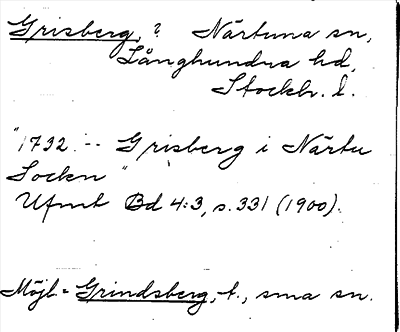 Grisberg, ? Närtuna sn,
Långhundra hd,
Stockh. l.
"1732 -- Grisberg i Närtu
Sockn"
Ufmt Bd 4:3, s. 331 (1900).
Möjl. = Grindsberg, t., sma sn.